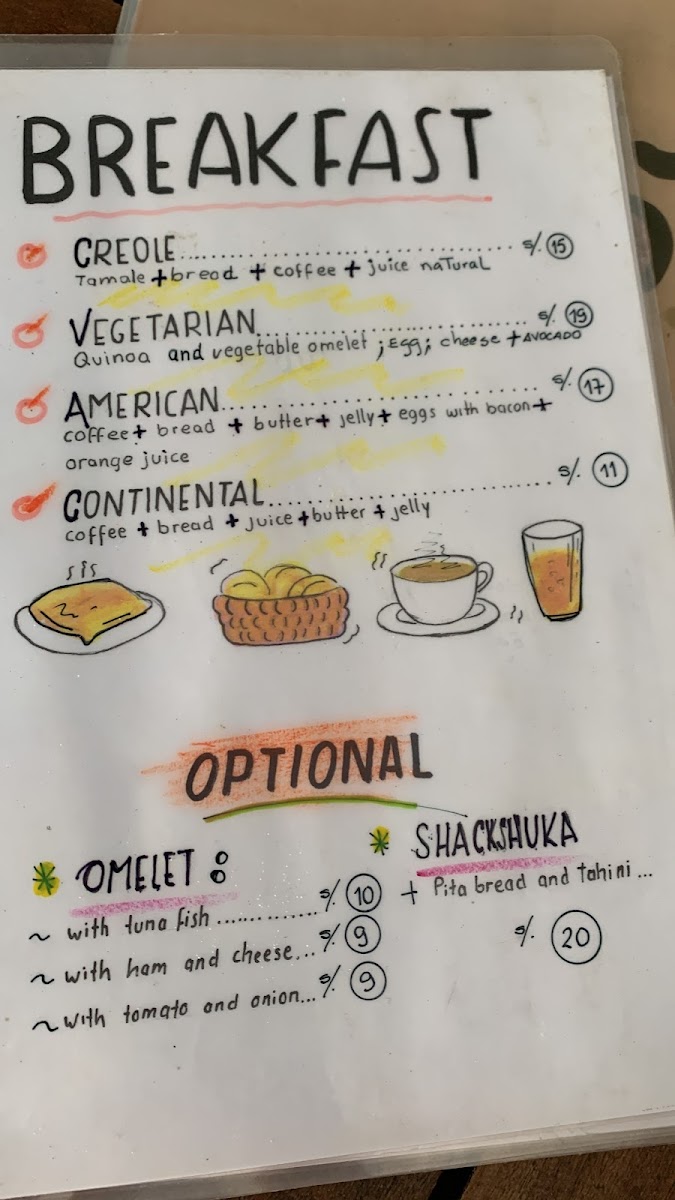 BREAKFAST
CREOLE.................................... s/. 15
Tamale + bread + coffee + juice natural
VEGETARIAN.............................. s/. 19
Quinoa and vegetable omelet ; Egg; cheese + AVOCADO
AMERICAN.................................. s/. 17
coffee + bread + butter + jelly + eggs with bacon +
orange juice
CONTINENTAL............................ s/. 11
coffee + bread + juice + butter + jelly
OPTIONAL
OMELET :
~ with tuna fish ............. s/. 10
~ with ham and cheese... s/. 9
~ with tomato and onion... s/. 9
SHACKSHUKA
+ Pita bread and tahini ...
s/. 20